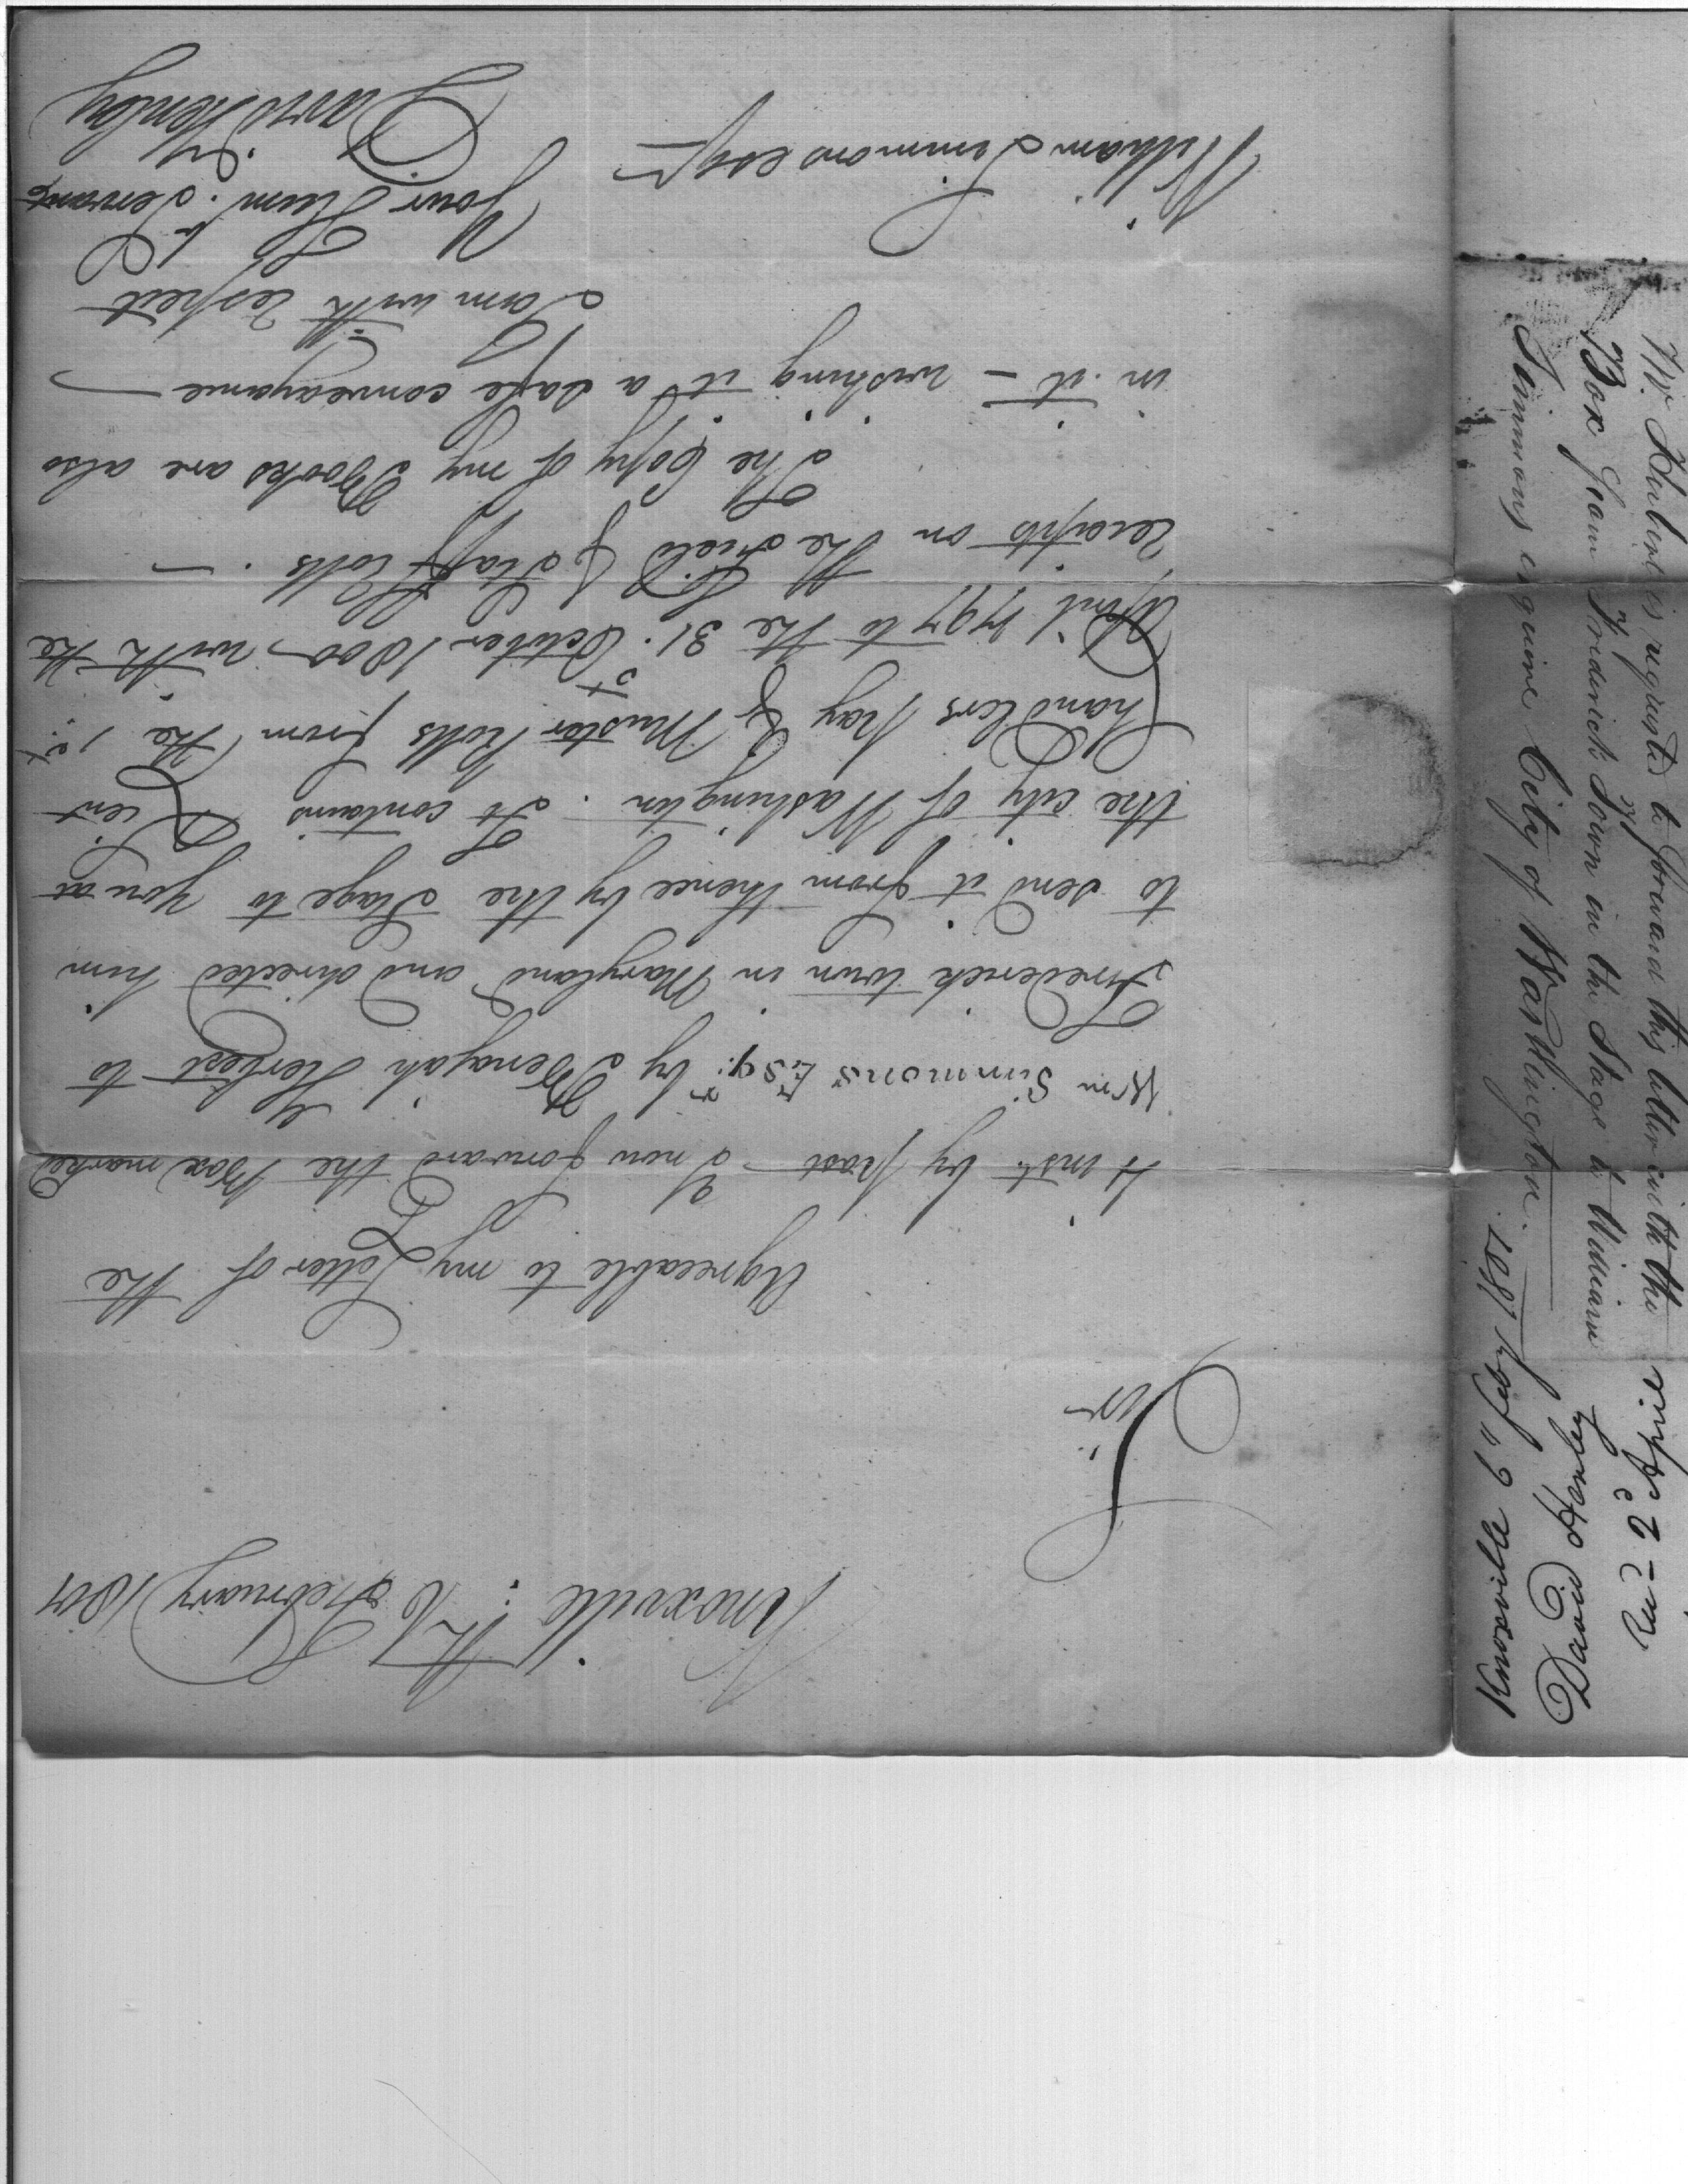 Knoxville: 6th February 1801
Sir
Agreeable to my Letter of the
4 inst. by post I now forward the Box marked
Wm Simmons Esqr. by Benajah Herbert to
Frederick town in Maryland and directed him
to send it from thence by the Stage to you at
the city of Washington. It contains Lieut
Chandlers Pay & Muster Rolls from the 1st
April 1797 to the 31st October 1800, with the
receipts on the Field & Staff Rolls. —
The Copy of my Books are also
in it — wishing it a safe conveyance —
I am with respect
Your Hum. Servant
David Henley
William Simmons esqr
Mr. Herbert is requested to forward this letter with the
Box from Frederick Town in the Stage to William
Simmons esquire City of Washington.
Knoxville 6" Feby 1801
David Henley
Recd 2d April